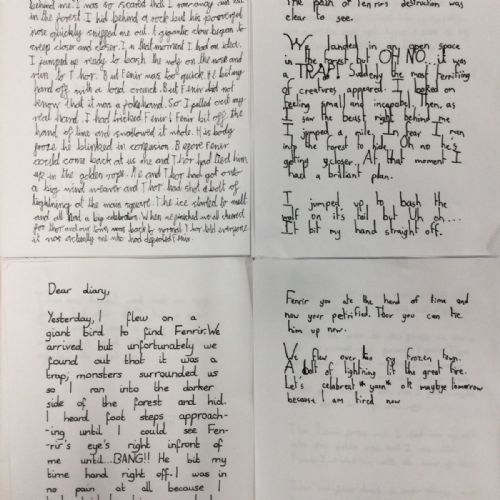 behind me. I was so scared that I ran away and hid
in the forest. I hid behind a rock but his powerful
nose quickly sniffed me out. A gigantic claw began to
creep closer and closer. In that moment I had an idea.
I jumped up ready to bash the wolf on the nose and
run to Thor. But Fenrir was too quick. He bit my
hand off with a loud crunch. But Fenrir did not
know that it was a fake hand. So I pulled out my
real hand. I had tricked Fenrir! Fenrir bit off the
hand of time and swallowed it whole. His body
froze he blinked in confusion. Before Fenrir
could come back at us me and Thor had tied him
up in the golden ropes. Me and Thor had got onto
a big wind weaver and Thor had shot a bolt of
lightning at the main square. The ice started to melt
and all had a big celebration. When we reached we all cheered
for thor and my town was back to normal. Thor told everyone
it was actually me who had defeated him.
The pain of Fenrir's destruction was
clear to see.
We landed in an open space
in the forest but OH NO... it was
a TRAP! Suddenly the most terrifying
of creatures appeared. I looked on
feeling small and incapabel. Then, as
I saw the beast right behind me
I jumped a mile. In fear I ran
into the forest to hide. Oh no he's
getting closer. At that moment I
had a brilliant plan.
I jumped up to bash the
wolf on it's tail but Uh oh...
It bit my hand straight off.
Dear diary,
Yesterday, I flew on a
giant bird to find Fenrir. We
arrived but unfortunately we
found out that it was a
trap; monsters surrounded us
so I ran into the darker
side of the forest and hid.
I heard foot steps approach-
-ing until I could see Fen-
-rir's eye's right infront of
me until...BANG!! He bit my
time hand right off. I was in
no pain at all because I
Fenrir you ate the hand of time and
now your petrified. Thor you can tie
him up now.
We flew over to my frozen town.
A bolt of lightning lit the great fire.
Let's celebrat *yawn* ok maybe tomorrow
because I am tired now